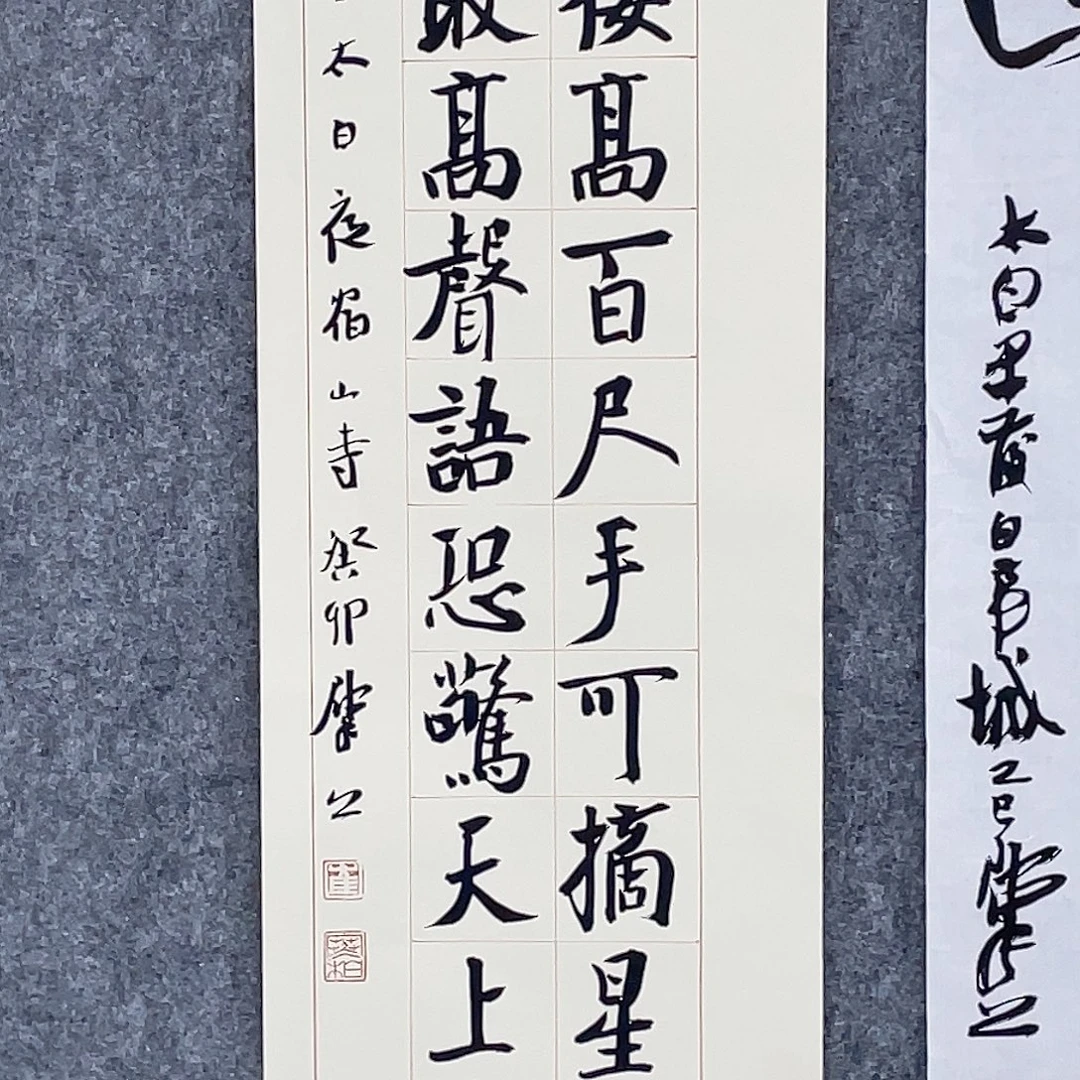 太白早發白帝城乙巳
樓髙百尺手可摘星
敢髙聲語恐驚天上
太白夜宿山寺癸卯